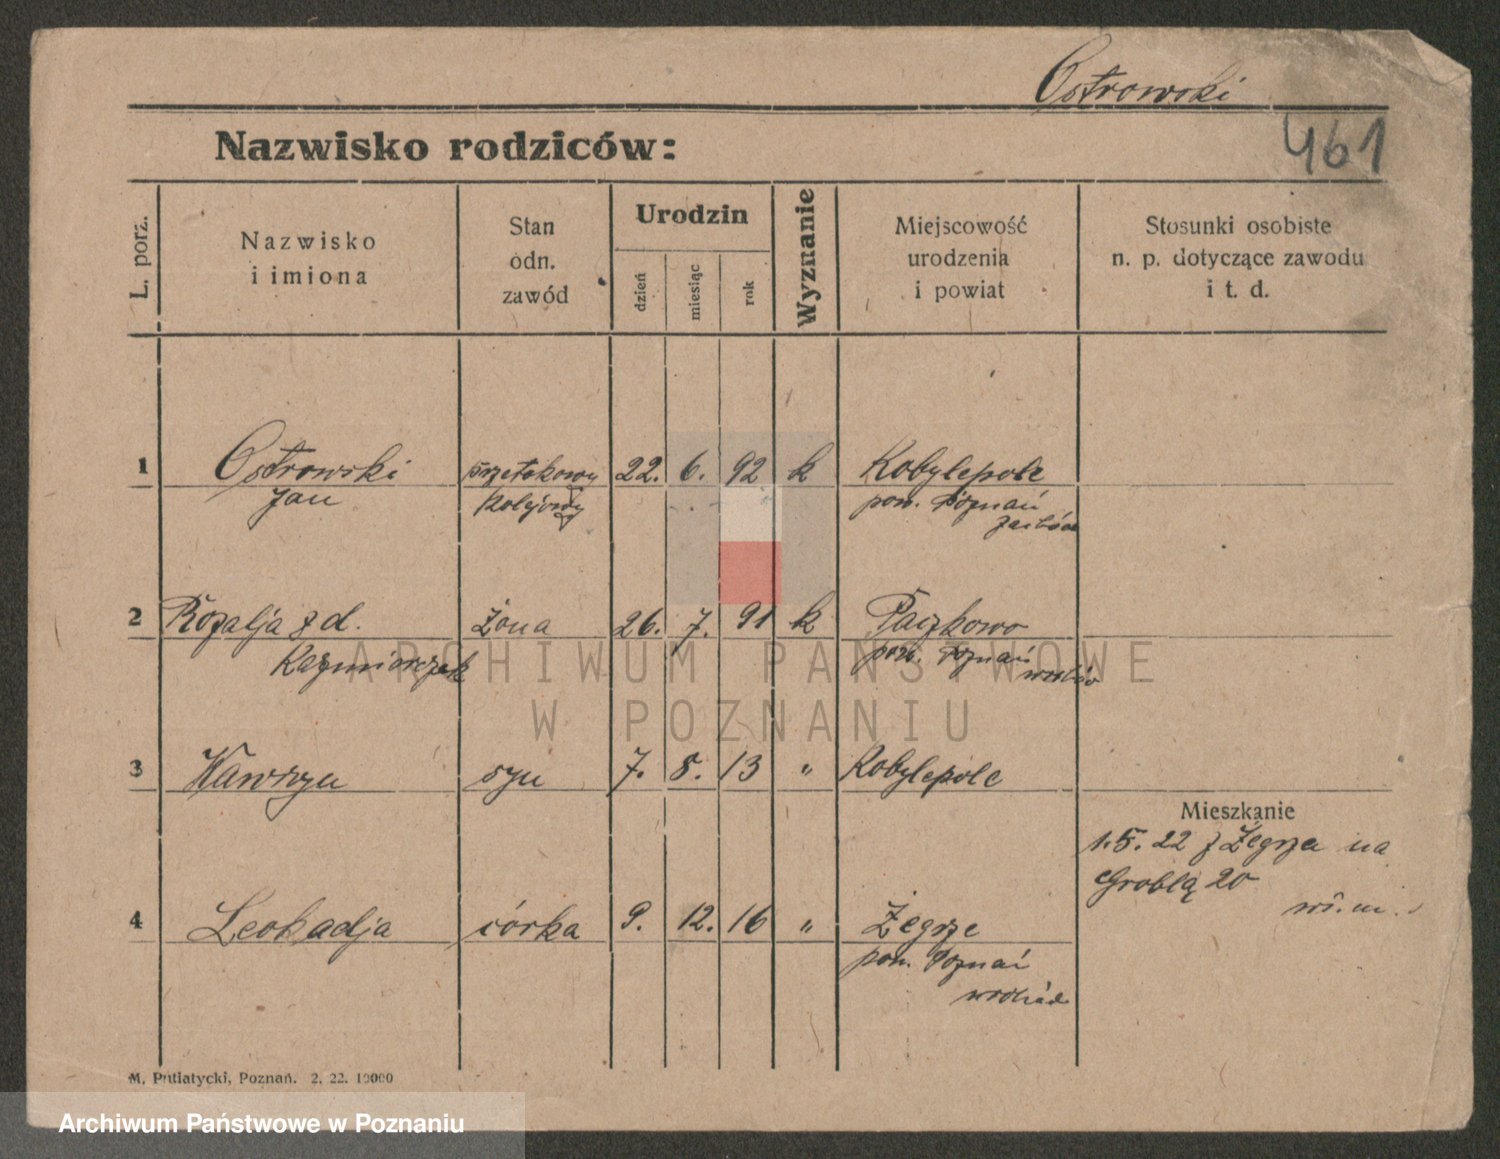 Ostrowski
Nazwisko rodziców:
461
L. porz.
Nazwisko
i imiona
Stan
odn.
zawód
Urodzin
dzień
miesiąc
rok
Wyznanie
Miejscowość
urodzenia
i powiat
Stosunki osobiste
n. p. dotyczące zawodu
i t. d.
1 Ostrowski 22. 6. 92 k Kobylepole
Jan kolejowy pow. Poznań
2 Rozalja z d. żona 26. 7. 91 k Paczkowo
Kazmierczak pow. Poznań
3 Wawrzyn syn 7. 8. 13 „ Kobylepole
Mieszkanie
1.5.22 z Żegrza na
Groblą 20
4 Leokadja córka 9. 12. 16 „ Żegrze
pow. Poznań
M. Putiatycki, Poznań. 2. 22. 10000
ARCHIWUM PAŃSTWOWE
W POZNANIU
Archiwum Państwowe w Poznaniu